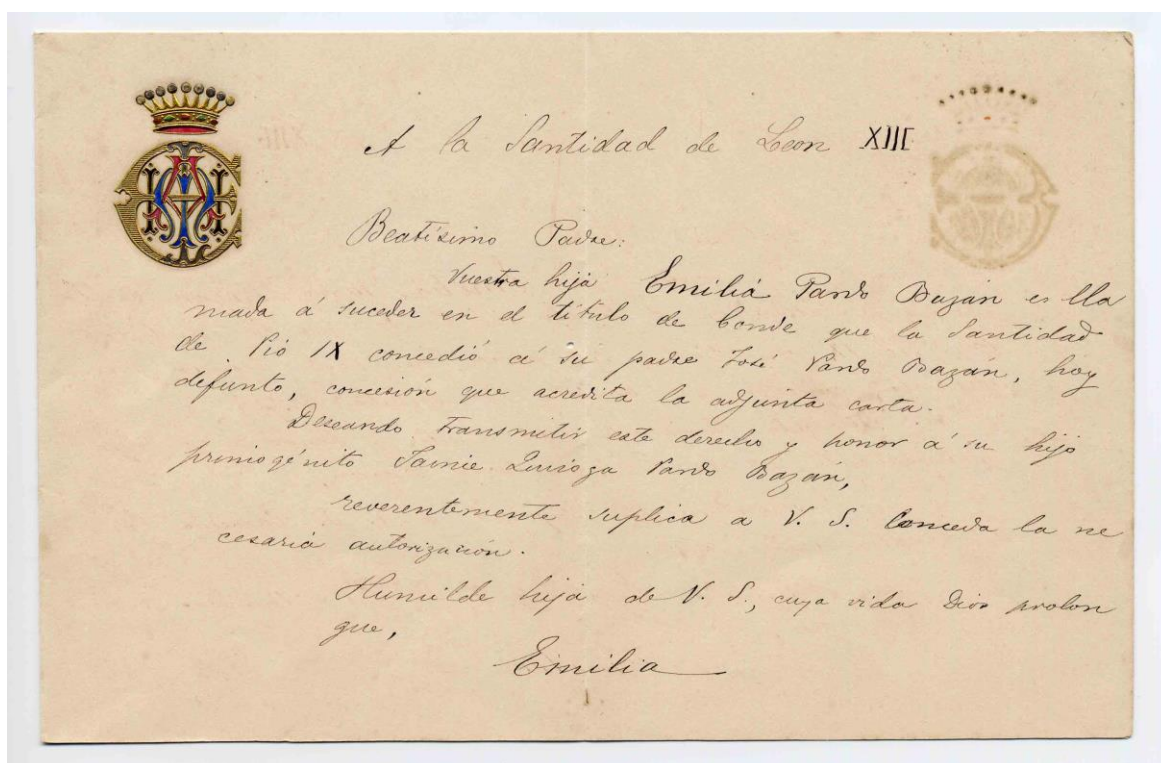 A la Santidad de Leon XIII
Beatísimo Padre:
Vuestra hija Emilia Pardo Bazán es lla
mada á suceder en el título de Conde que la Santidad
de Pio IX concedió á su padre José Pardo Bazán, hoy
defunto, concesión que acredita la adjunta carta.
Deseando transmitir este derecho y honor á su hijo
primogénito Jaime Quiroga Pardo Bazán,
reverentemente suplica a V. S. Conceda la ne
cesaria autorización.
Humilde hija de V. S., cuya vida Dios prolon
gue,
Emilia